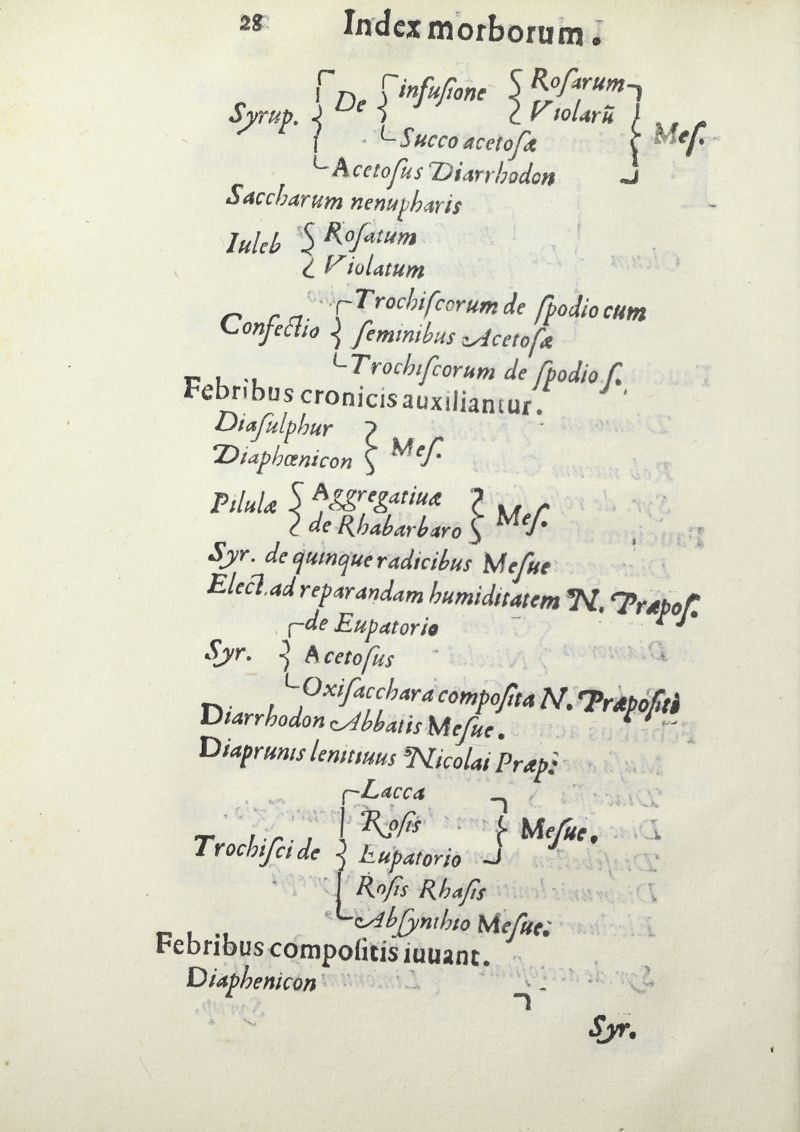 28 Index morborum.
Syrup. De infuſione Roſarum
Violarũ Meſ.
Succo acetoſæ
Acetoſus Diarrhodon
Saccharum nenupharis
Iuleb Roſatum
Violatum
Confectio Trochiſcorum de ſpodio cum
ſeminibus Acetoſæ
Trochiſcorum de ſpodio ſ.
Febribus cronicis auxiliantur.
Diaſulphur
Diaphœnicon Meſ.
Pilulæ Aggregatiuæ
de Rhabarbaro Meſ.
Syr. de quinque radicibus Meſue
Elect. ad reparandam humiditatem N. Præpoſ.
de Eupatorio
Syr. Acetoſus
Oxiſacchara compoſita N. Præpoſiti
Diarrhodon Abbatis Meſue.
Diaprunis lenitiuus Nicolai Præp:
Lacca
Roſis
Trochiſci de Eupatorio Meſue.
Roſis Rhaſis
Abſynthio Meſue:
Febribus compoſitis iuuant.
Diaphenicon
Syr.